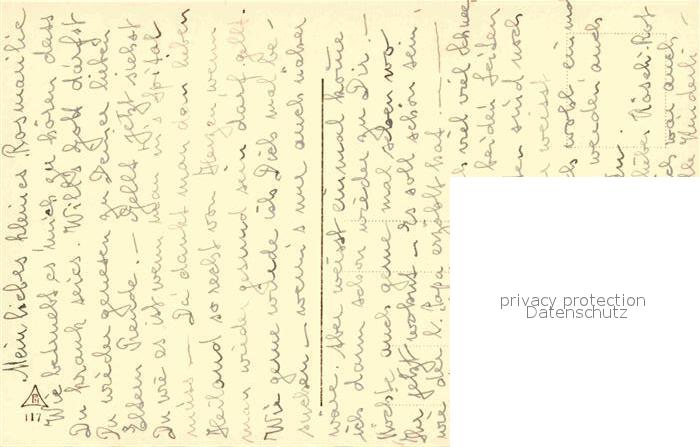 Mein liebes kleines Rosmarilie
Wie bemüht es mich zu hören dass
Du krank seiest. Will's Gott darfst
Du wieder genesen zu Deiner lieben
Eltern Freude. — Gellt jetzt siehst
Du wie es ist wenn man in's Spital
muss — Da dankt man dem lieben
Heiland so recht von Herzen wenn
man wieder gesund sein darf gellt.
Wie gerne würde ich Dich mal be-
suchen — wenn's nur auch näher
wäre. Aber weisst einmal komme
ich dann schon wieder zu Dir. —
Möchte auch gerne mal sehen wo
Ihr jetzt wohnt — es soll schön sein
wie der l. Papa erzählt hat. —
viel viel Schnee
beiden Seiten
sind noch
weisst
wohl ein
werden auch
liebes Röschi
war auch
117
privacy protection
Datenschutz